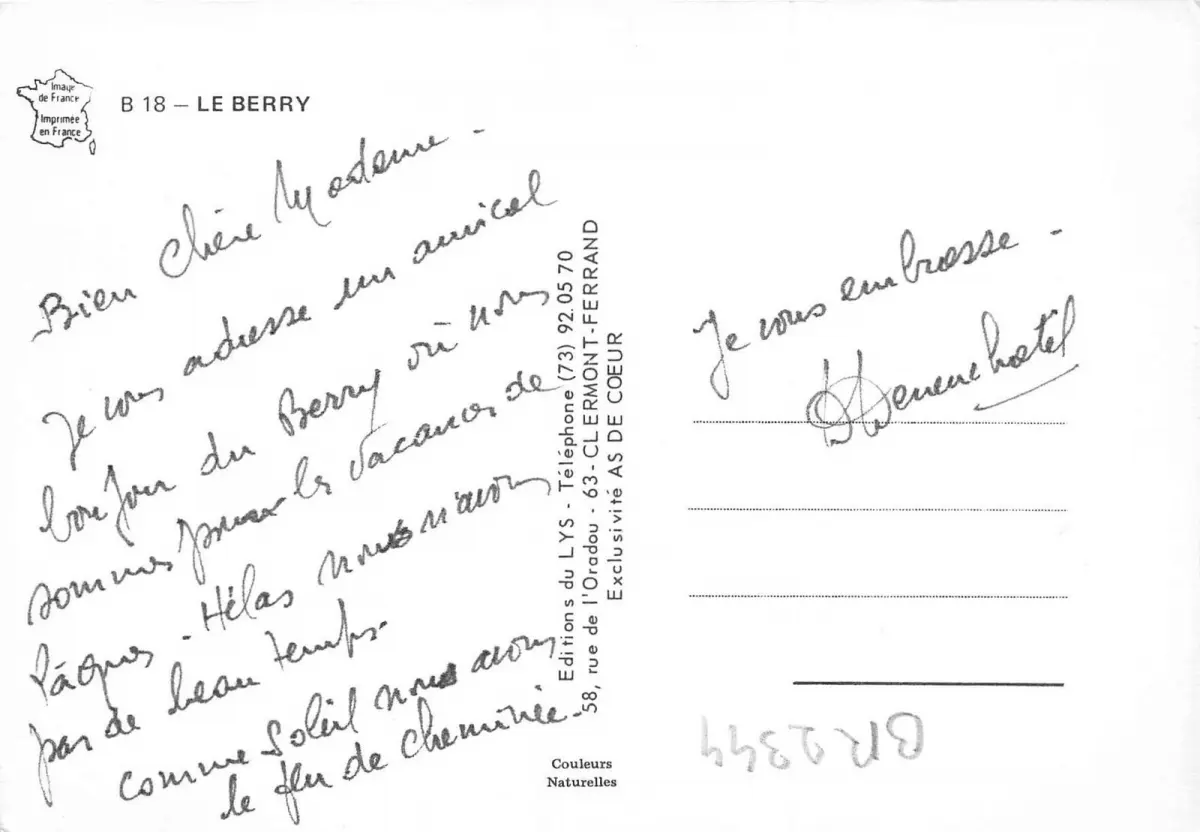 Image
de France
Imprimée
en France
B 18 — LE BERRY
Bien Chère Madame -
Je vous adresse un amical
bonjour du Berry où nous
sommes pour les vacances de
Pâques - Hélas nous n'avons
pas de beau temps -
comme soleil nous avons
le feu de cheminée -
Editions du LYS - Téléphone (73) 92.05 70
58, rue de l'Oradou - 63 - CLERMONT-FERRAND
Exclusivité AS DE COEUR
Couleurs
Naturelles
Je vous embrasse -
BR2344